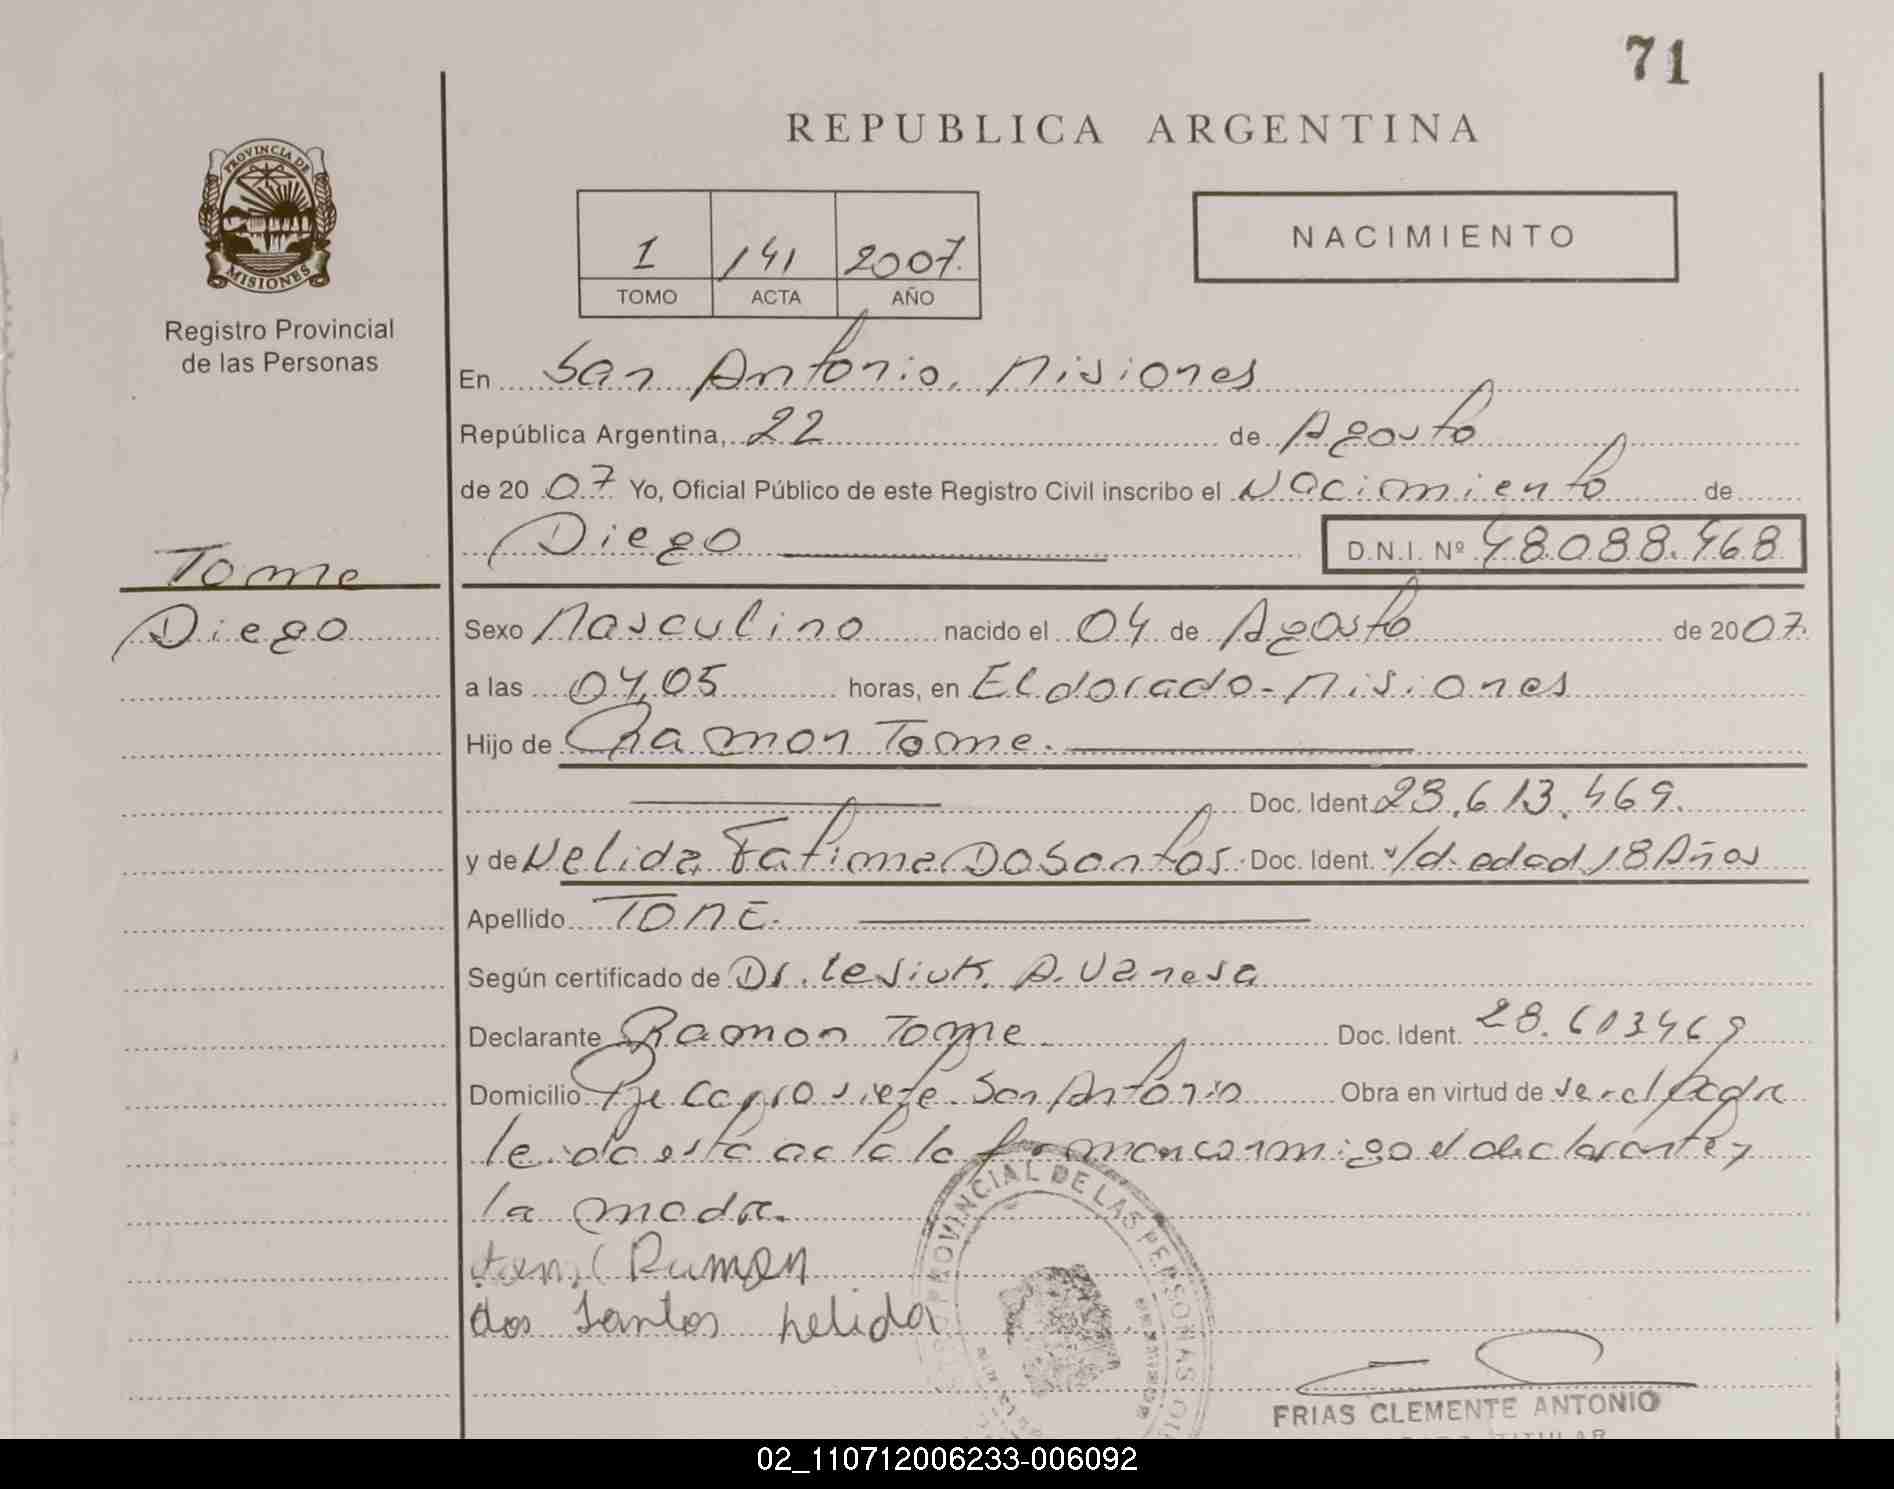 71
REPUBLICA ARGENTINA
PROVINCIA DE MISIONES
Registro Provincial
de las Personas
1 141 2007.
TOMO ACTA AÑO
NACIMIENTO
En San Antonio, Misiones
República Argentina, 22 de Agosto
de 20 07 Yo, Oficial Público de este Registro Civil inscribo el Nacimiento de
Diego D.N.I. Nº 48.088.468
Tome
Diego
Sexo Masculino nacido el 04 de Agosto de 2007.
a las 04,05 horas, en Eldorado - Misiones
Hijo de Ramon Tome.
Doc. Ident. 28.613.469.
y de Nelida Fatima Dosantos. Doc. Ident. s/d. edad 18 Años
Apellido TOME.
Según certificado de Dr. Lesiuk. A. Vanesa
Declarante Ramon Tome Doc. Ident. 28.613469
Domicilio siete. San Antonio Obra en virtud de ser el padre
leida esta acta la firman conmigo el declarante y
la madre.
Ramon
dos Santos nelida
PROVINCIAL DE LAS PERSONAS
FRIAS CLEMENTE ANTONIO
TITULAR
02_110712006233-006092